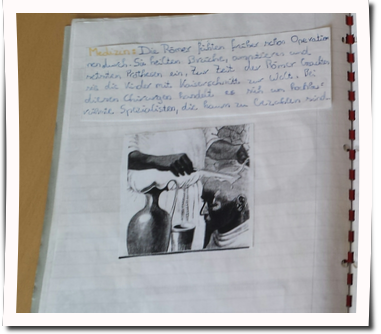 Medizin: Die Römer führten früher schon Operatio-
nen durch. Sie heilten Brüche, amputierten und
setzten Prothesen ein. Zur Zeit der Römer brachten
sie die Kinder mit Kaiserschnitte zur Welt. Bei
diesen Chirurgen handelt es sich um hoch
Spezialisten, die kaum zu bezahlen sind.